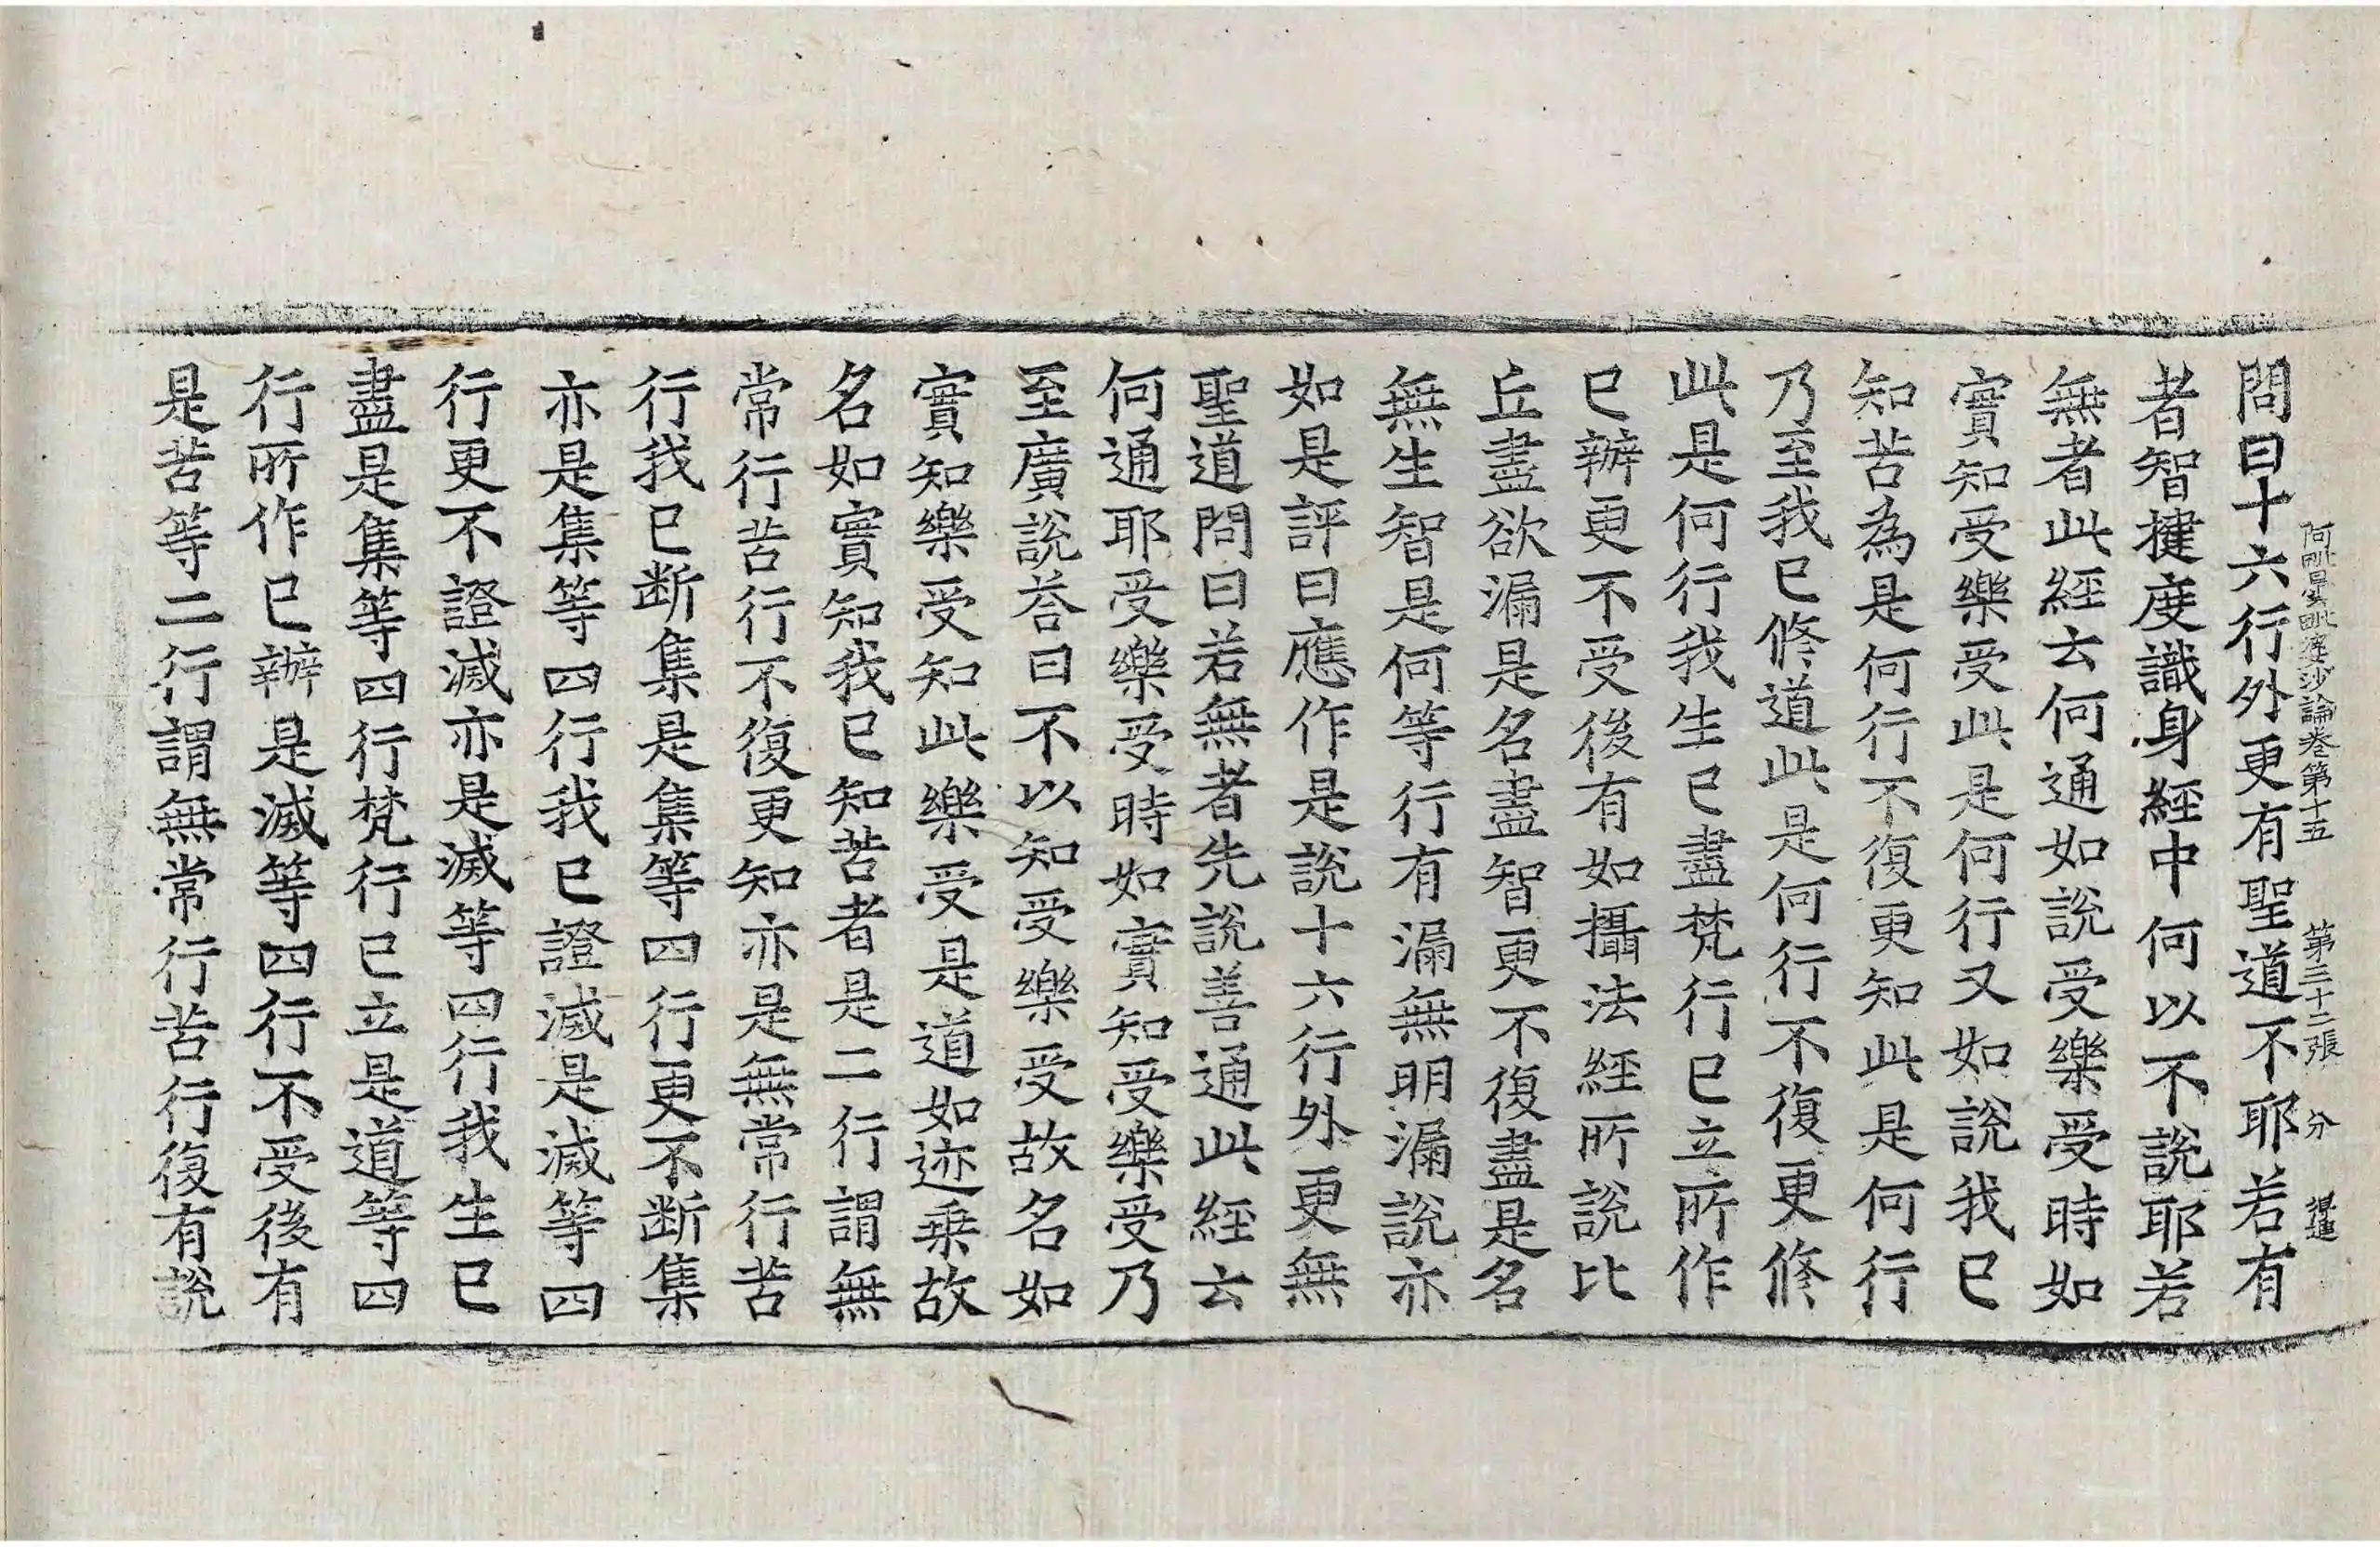 阿毗曇毗婆沙論卷第十五　第三十二張　分
問曰十六行外更有聖道不耶若有
者智揵度識身經中何以不說耶若
無者此經云何通如說受樂受時如
實知受樂受此是何行又如說我已
知苦為是何行不復更知此是何行
乃至我已修道此是何行不復更修
此是何行我生已盡梵行已立所作
已辦更不受後有如攝法經所說比
丘盡欲漏是名盡智更不復盡是名
無生智是何等行有漏無明漏說亦
如是評曰應作是說十六行外更無
聖道問曰若無者先說善通此經云
何通耶受樂受時如實知受樂受乃
至廣說荅曰不以知受樂受故名如
實知樂受知此樂受是道如迹乗故
名如實知我已知苦者是二行謂無
常行苦行不復更知亦是無常行苦
行我已断集是集等四行更不断集
亦是集等四行我已證滅是滅等四
行更不證滅亦是滅等四行我生已
盡是集等四行梵行已立是道等四
行所作已辦是滅等四行不受後有
是苦等二行謂無常行苦行復有說